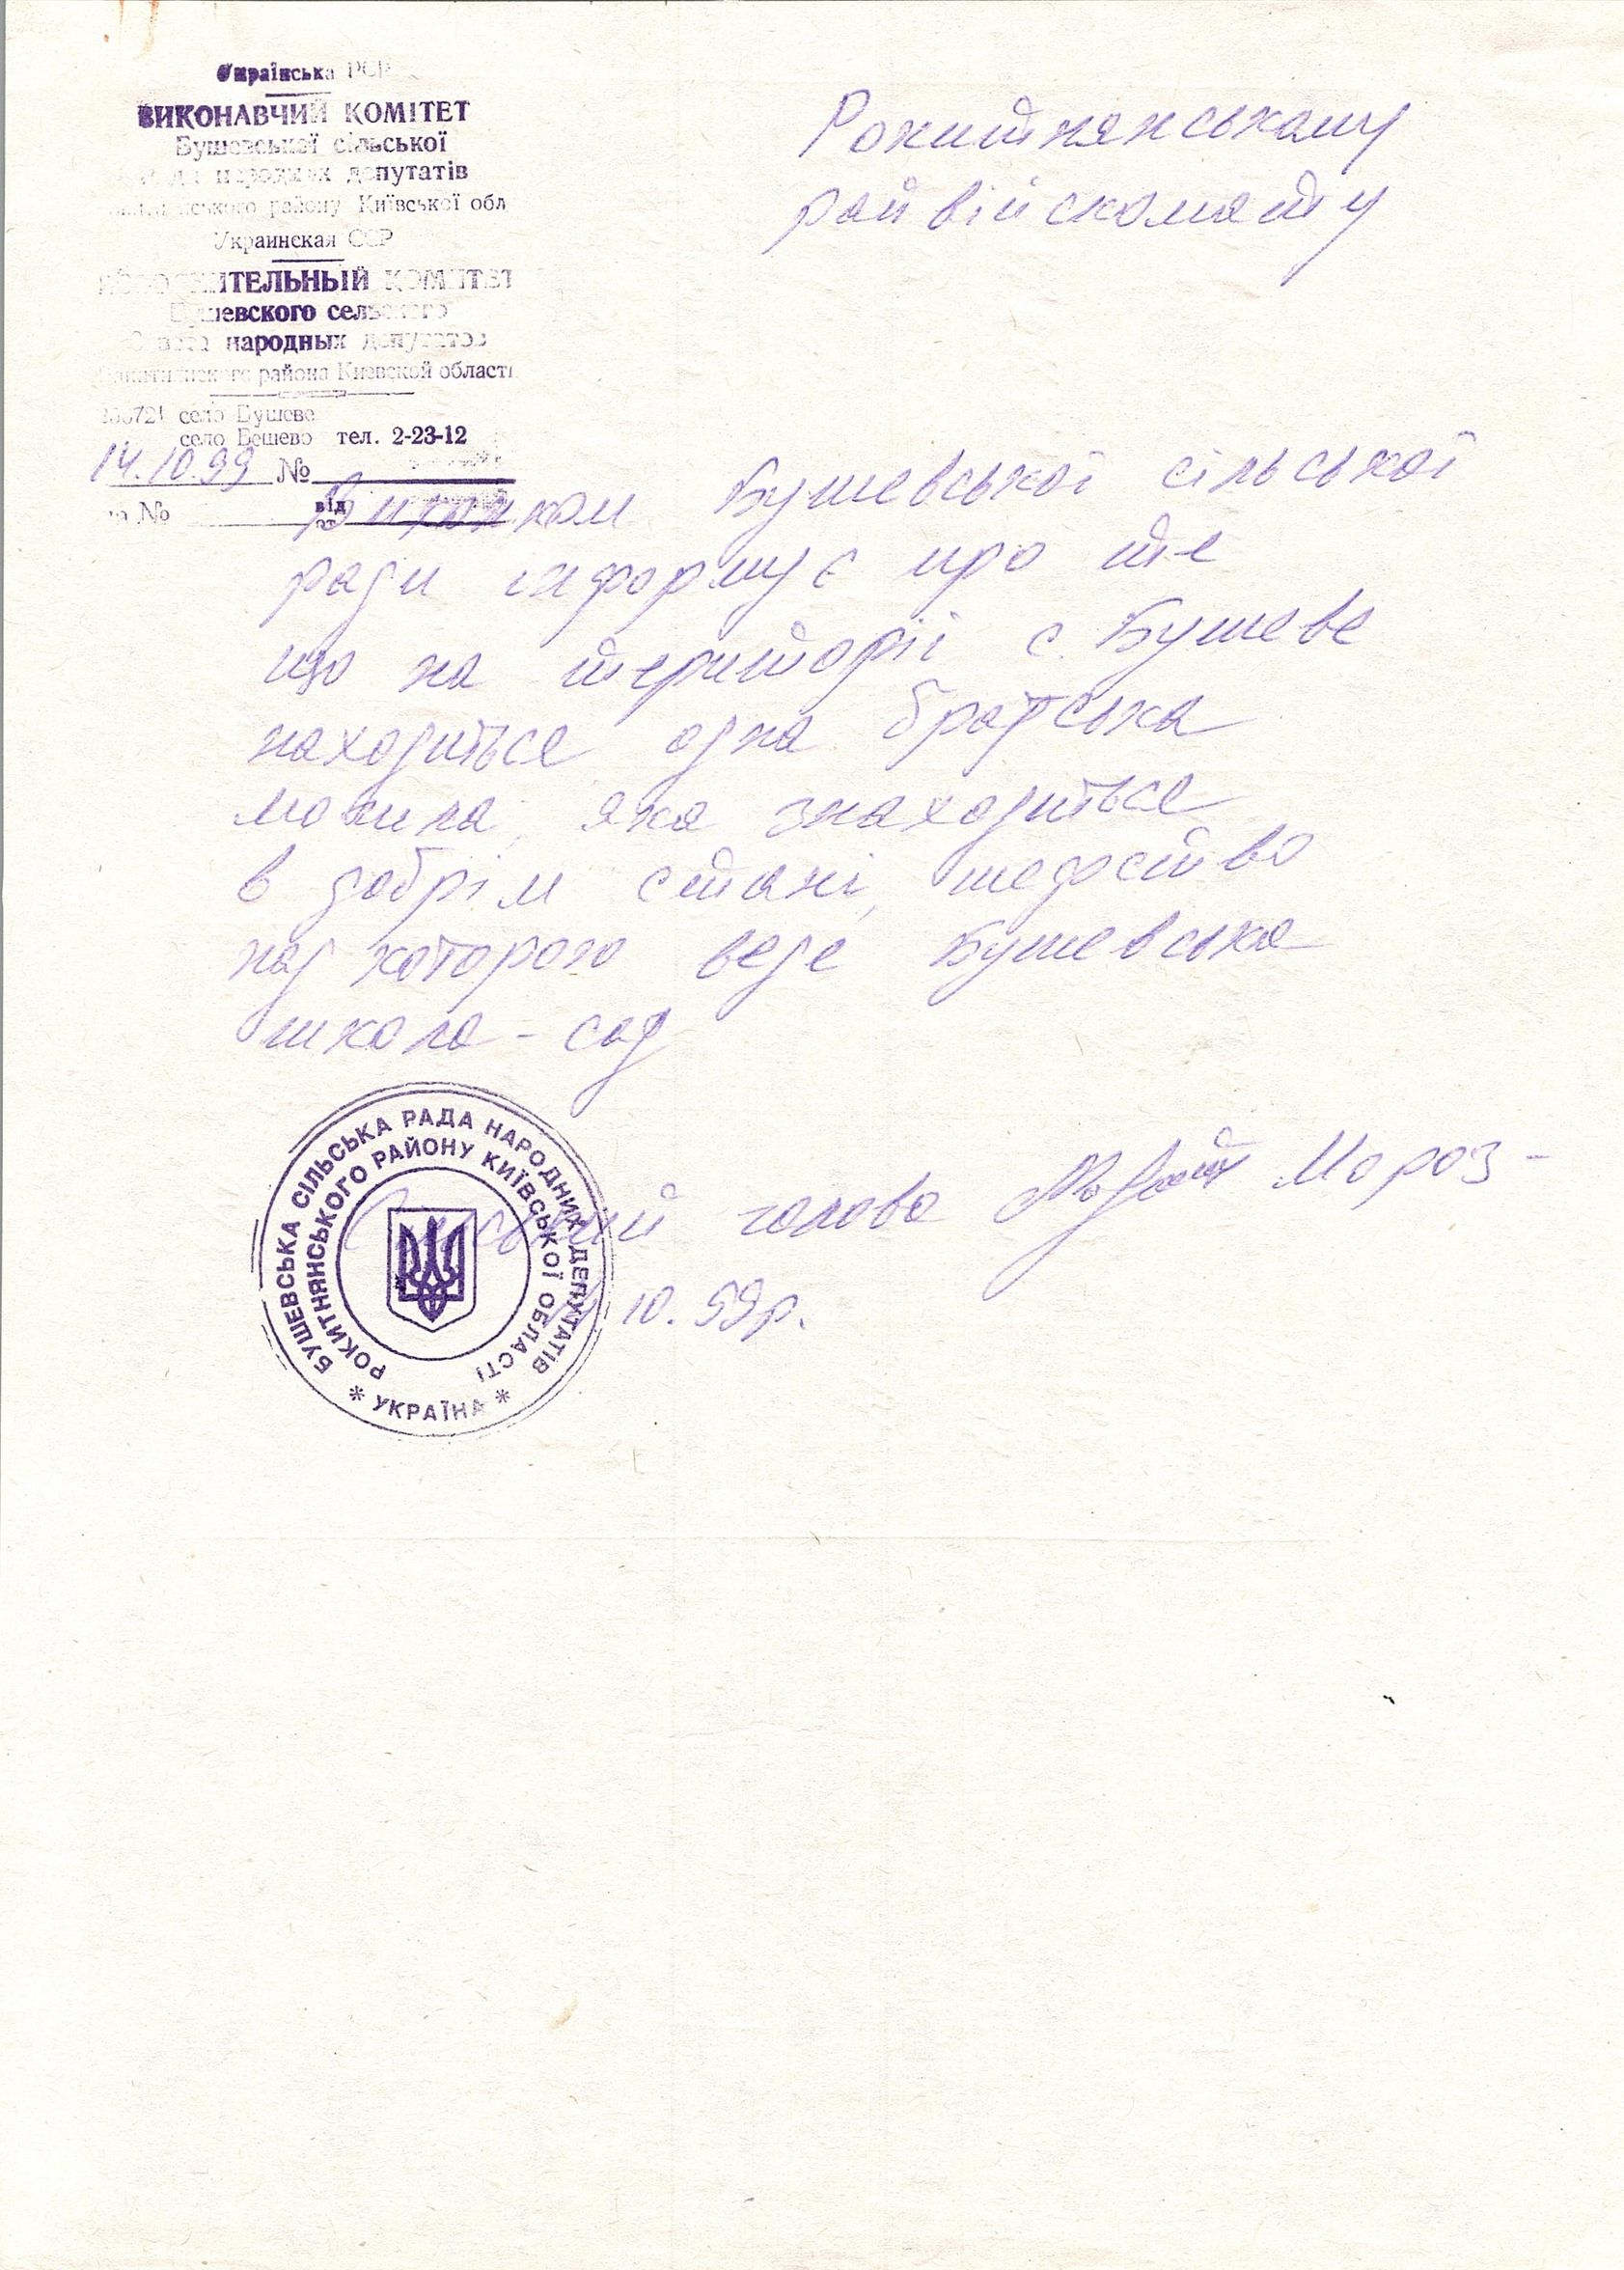 Українська РСР
ВИКОНАВЧИЙ КОМІТЕТ
Бушевської сільської
Ради народних депутатів
Київської обл
району
Украинская ССР
ИСПОЛНИТЕЛЬНЫЙ КОМИТЕТ
Бушевского сельского
Совета народных депутатов
района Киевской област
село Бушеве
село Бешево тел. 2-23-12
14.10.99 №
на № від
от
Рокитнянському
райвійскомату
Виконком Бушевської сільської
ради інформує про те
що на території с. Бушеве
находиться одна братська
могила, яка знаходиться
в добрім стані, шефство
над которою веде Бушевська
школа - сад
Сільський голова Мороз -
10. 99р.
БУШЕВСЬКА СІЛЬСЬКА РАДА НАРОДНИХ ДЕПУТАТІВ
РОКИТНЯНСЬКОГО РАЙОНУ КИЇВСЬКОЇ ОБЛАСТІ
* УКРАЇНА *